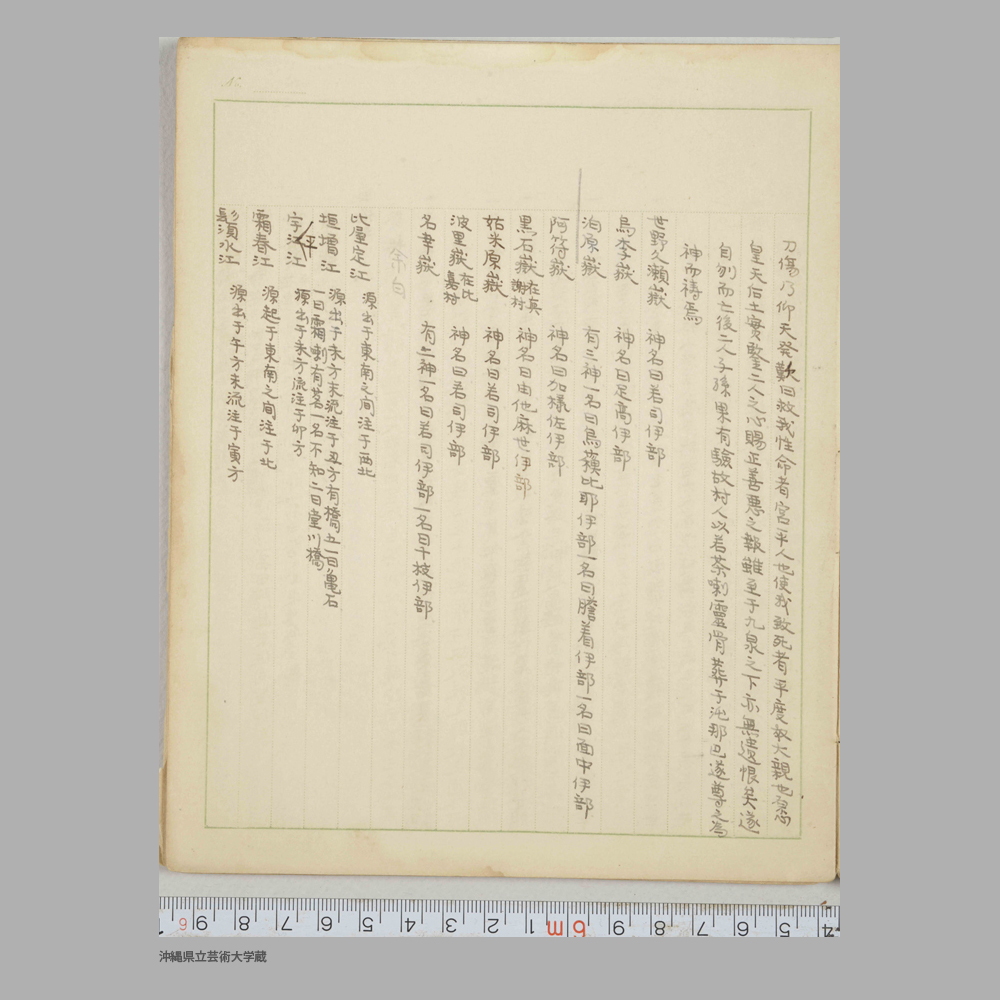 刀傷乃仰天発歎曰救我性命者宮平人也使我致死者平度教大親也
皇天后土實鑿二人之心賜正善悪之報雖至于九泉之下亦無遺恨矣遂
自刎而亡後二人子孫果有驗故村人以若茶喇靈骨葬于池那巴遂尊之為
神而祷焉
世野久瀬嶽 神名曰若司伊部
烏李嶽 神名曰足高伊部
泊原嶽 有三神一名曰烏蘋比耶伊部一名曰膽着伊部一名曰面中伊部
阿符嶽 神名曰加樣佐伊部
黒石嶽在真謝村 神名曰由他麻世伊部
姑米原嶽 神名曰若司伊部
波里嶽在比嘉村 神名曰君司伊部
名幸嶽 有二神一名曰君司伊部一名曰千枝伊部
余白
比屋定江 源出于東南之間注于西北
垣増江 源出于未方末流注于丑方有橋二一曰亀石
一曰霜喇有茗一名不知二曰堂川橋
宇江平江 源出于未方流注于卯方
霜春江 源起于東南之間注于北
鬚水江 源出于午方末流注于寅方
沖縄県立芸術大学蔵